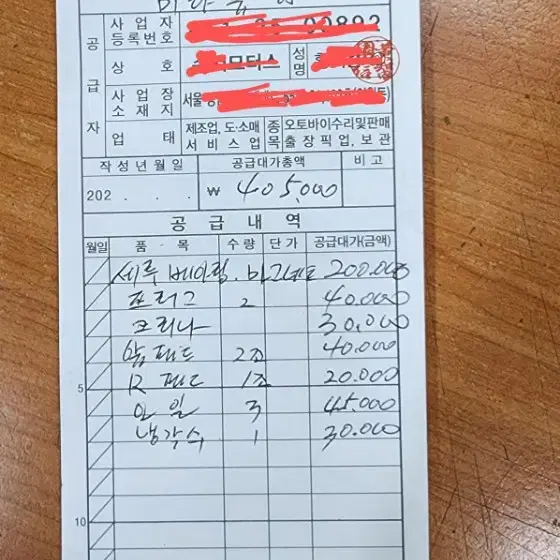 공급자
사업자
등록번호
상 호
모터스
성명
사업장
소재지
서울
업 태
제조업, 도·소매
서비스업
종목
오토바이수리및판매
출장픽업, 보관
작성년월일
공급대가총액
비 고
202 . . .
₩ 405,000
공 급 내 역
월일 품 목 수 량 단 가 공급대가(금액)
세루 베이링. 마그네트 200.000
프러그 2 40.000
크리나 30.000
앞패드 2조 40.000
5 R패드 1조 20.000
오일 3 45.000
냉각수 1 30.000
10